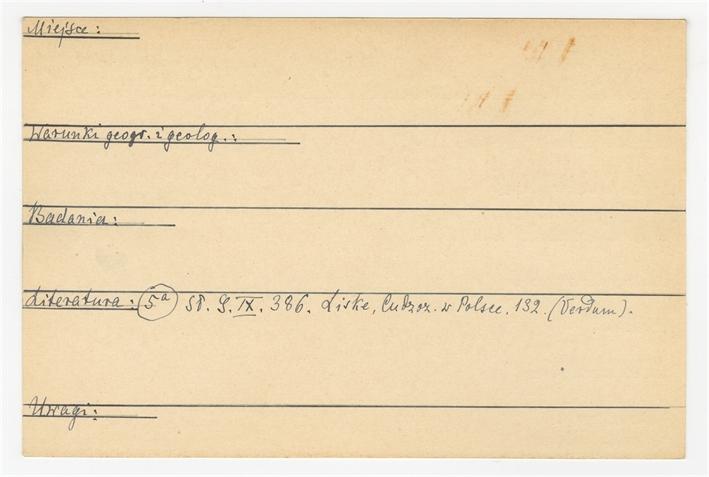 Miejsce:
Warunki geogr. i geolog.:
Badania:
Literatura: 5a Sł. G. IX. 386. Liske, Cudzoz. w Polsce. 132. (Verdum).
Uwagi: